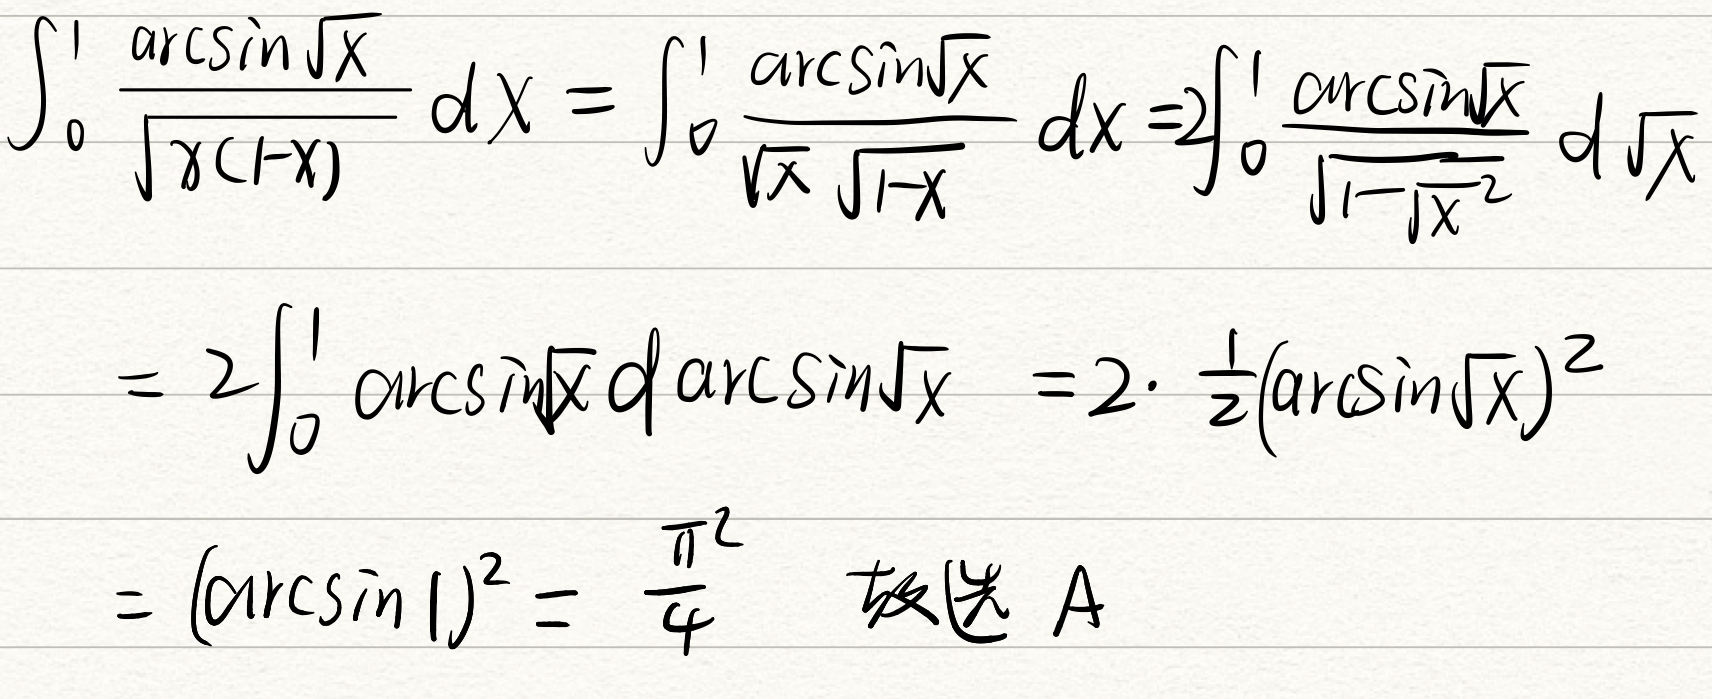 ∫₀¹ arcsin√x / √(x(1-x)) dx = ∫₀¹ arcsin√x / (√x √(1-x)) dx = 2∫₀¹ arcsin√x / √(1-√x²) d√x
= 2∫₀¹ arcsin√x d arcsin√x = 2 · 1/2 (arcsin√x)²
= (arcsin 1)² = π²/4 故选 A